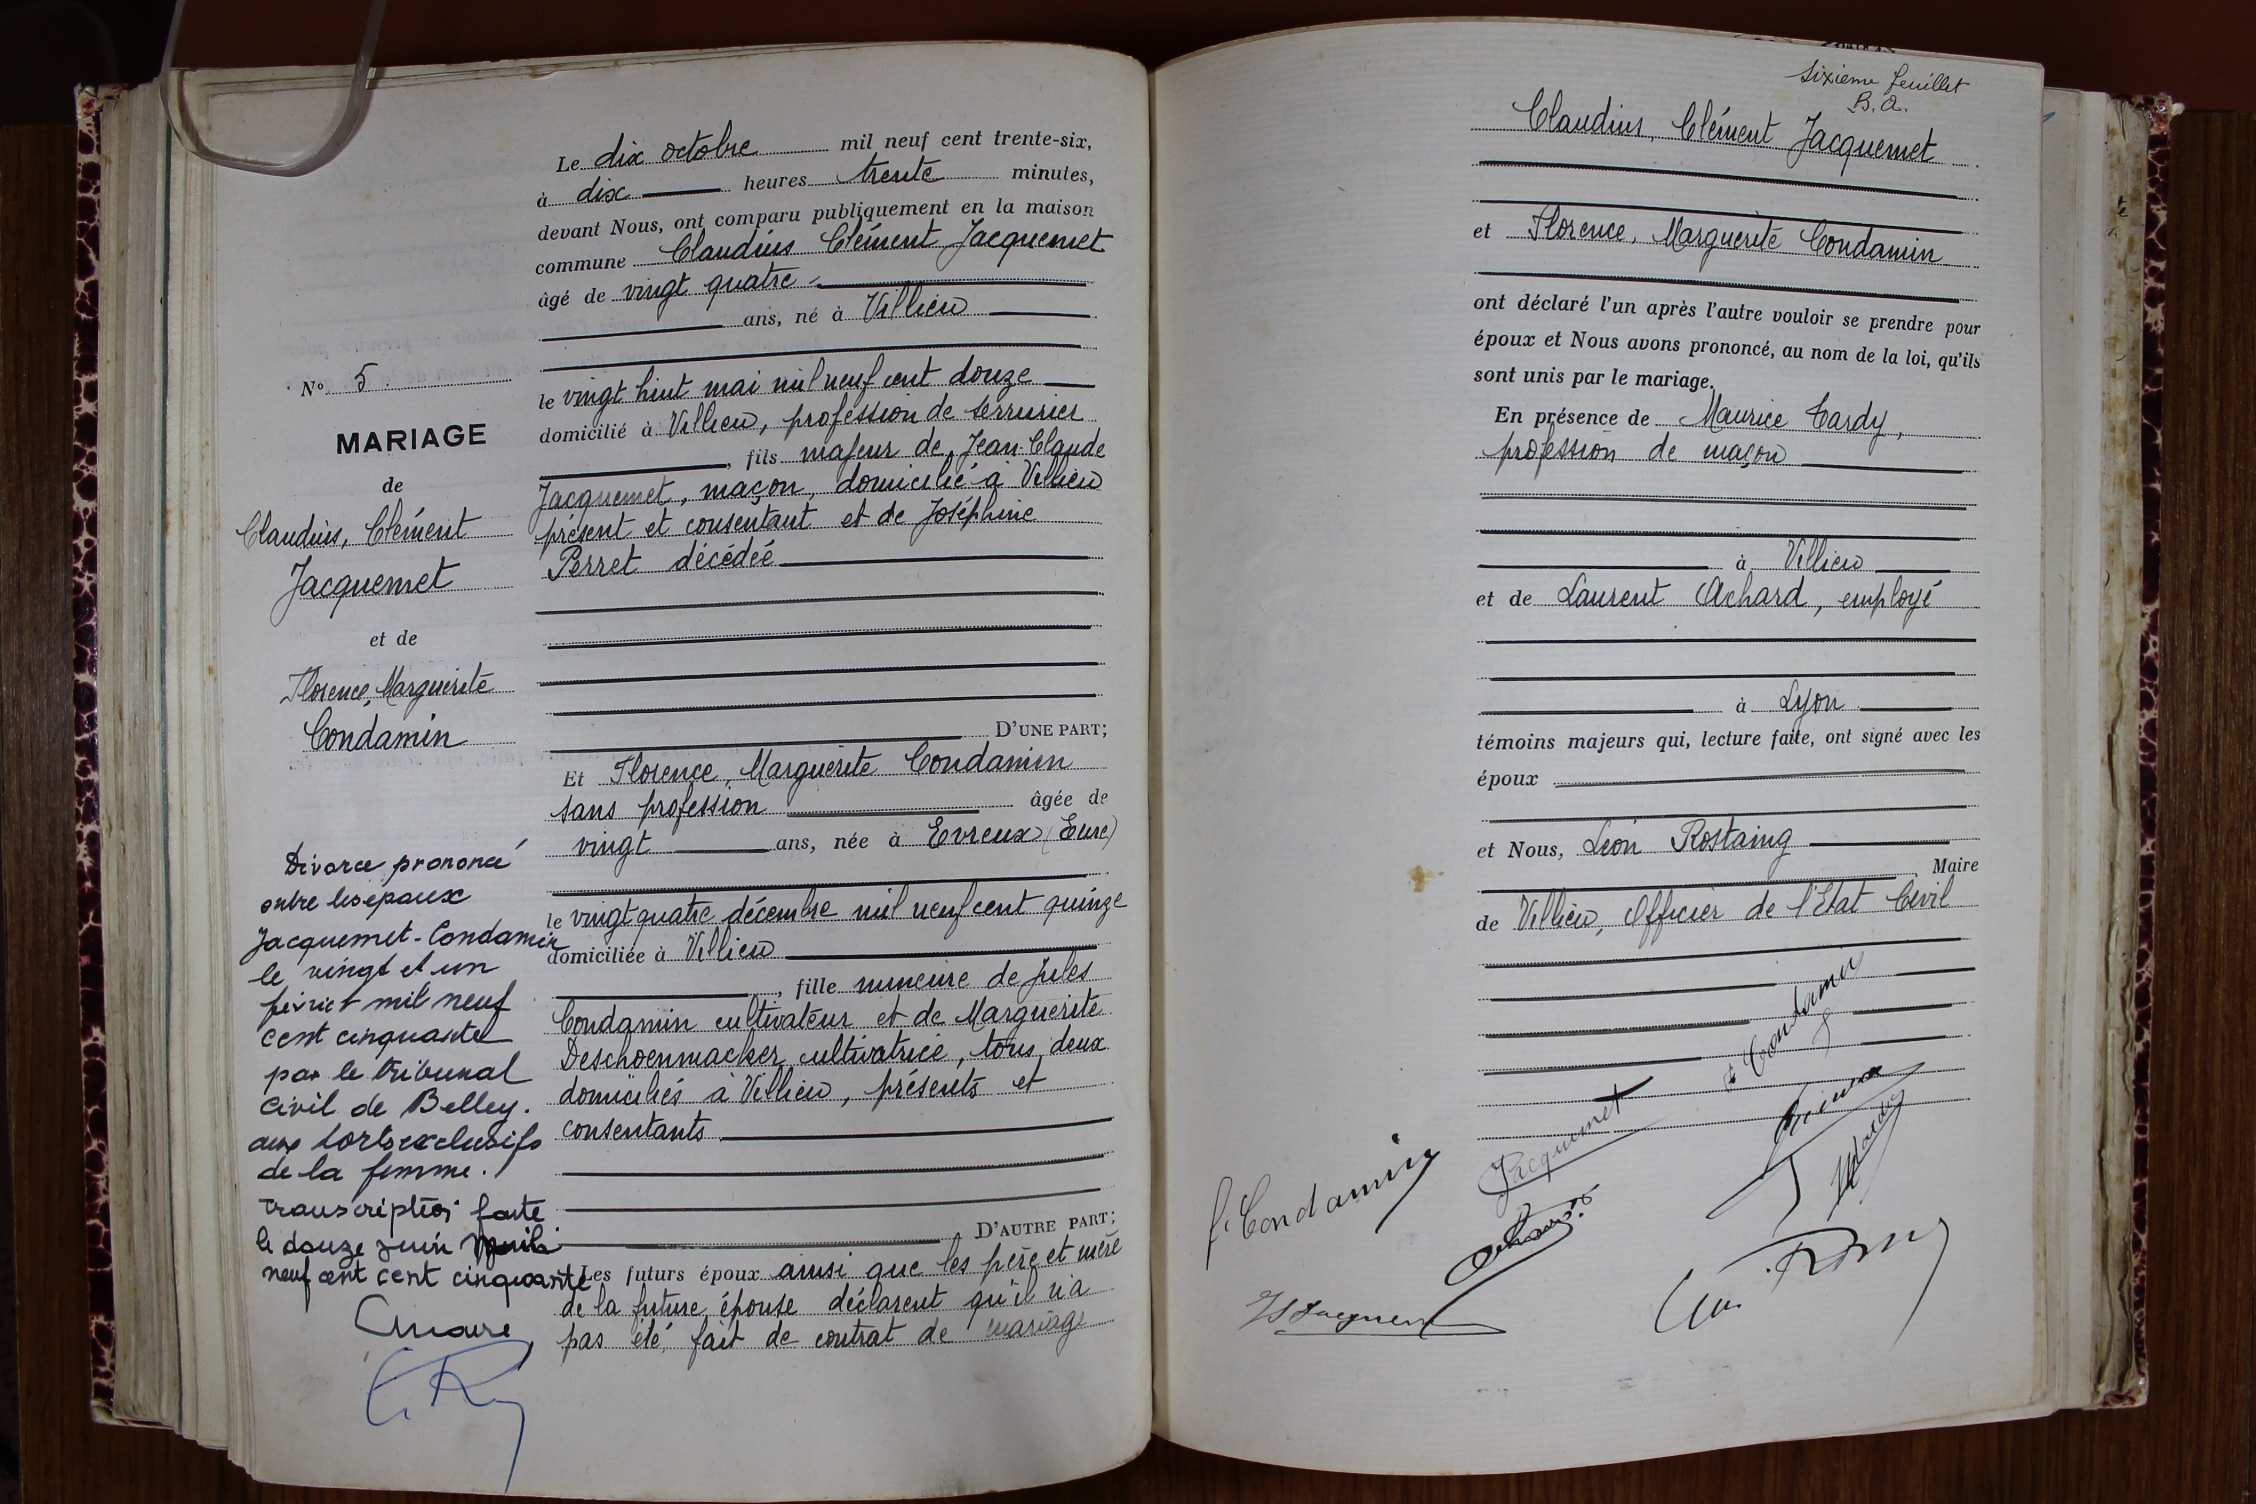 N° 5
MARIAGE
de
Claudius, Clément
Jacquemet
et de
Florence, Marguerite
Condamin
Divorce prononcé
entre les époux
Jacquemet-Condamin
le vingt et un
février mil neuf
cent cinquante
par le Tribunal
Civil de Belley.
aux torts exclusifs
de la femme.
Transcription faite
le douze juin
neuf cent cent cinquante
Le dix octobre mil neuf cent trente-six,
à dix heures trente minutes,
devant Nous, ont comparu publiquement en la maison
commune Claudius Clément Jacquemet
âgé de vingt quatre
ans, né à Villieu
le vingt huit mai mil neuf cent douze
domicilié à Villieu, profession de serrurier
, fils majeur de Jean Claude
Jacquemet, maçon, domicilié à Villieu
présent et consentant et de Joséphine
Perret décédée
D'UNE PART;
Et Florence, Marguerite Condamin
sans profession âgée de
vingt ans, née à Evreux (Eure)
le vingt quatre décembre mil neuf cent quinze
domiciliée à Villieu
, fille mineure de Jules
Condamin cultivateur et de Marguerite
Deschoenmacker cultivatrice, tous deux
domiciliés à Villieu, présents et
consentants
D'AUTRE PART;
Les futurs époux ainsi que les père et mère
de la future épouse déclarent qu'il n'a
pas été fait de contrat de mariage
Sixième feuillet
B.A.
Claudius, Clément Jacquemet
et Florence, Marguerite Condamin
ont déclaré l'un après l'autre vouloir se prendre pour
époux et Nous avons prononcé, au nom de la loi, qu'ils
sont unis par le mariage.
En présence de Maurice Tardy,
profession de maçon
à Villieu
et de Laurent Achard, employé
à Lyon
témoins majeurs qui, lecture faite, ont signé avec les
époux
et Nous, Léon Rostaing
Maire
de Villieu, Officier de l'Etat Civil
Condamin
Jacquemet
f. Condamin